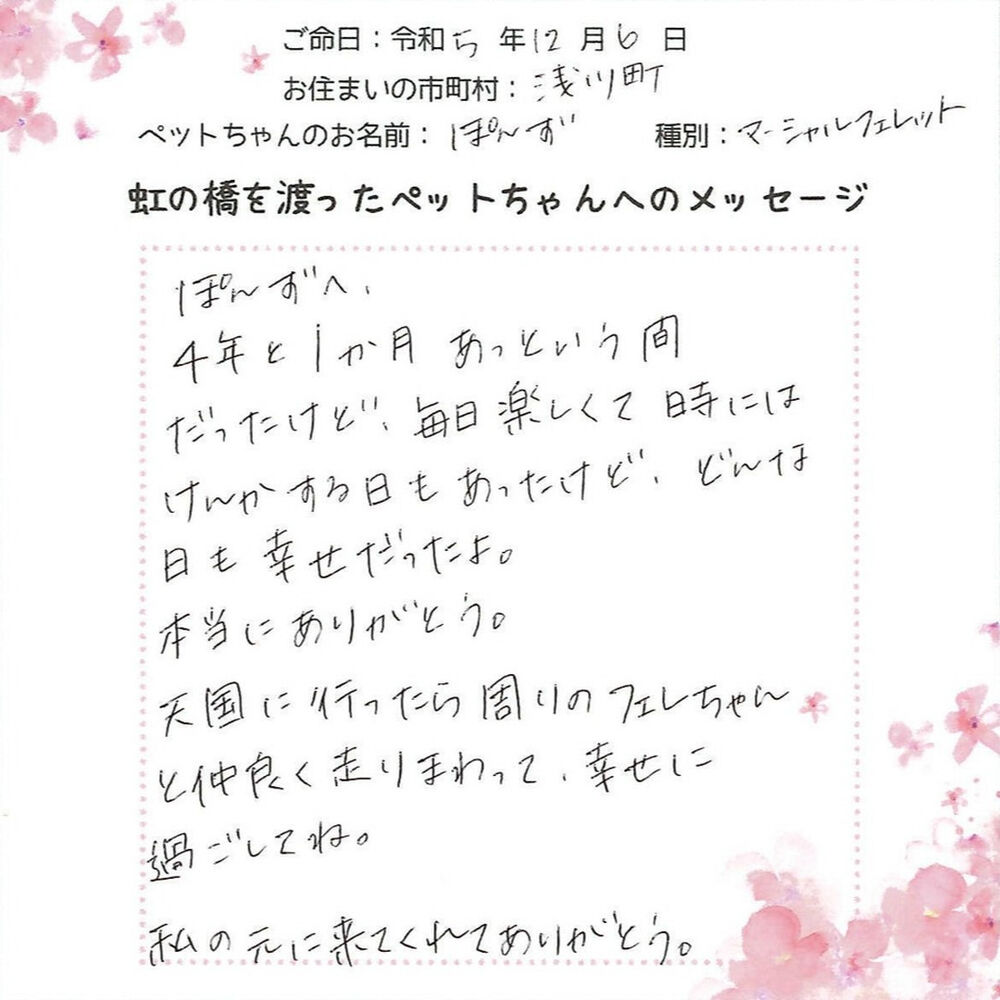 ご命日：令和5年12月6日
お住まいの市町村：浅川町
ペットちゃんのお名前：ぽんず 種別：マーシャルフェレット
虹の橋を渡ったペットちゃんへのメッセージ
ぽんずへ、
4年と1か月あっという間
だったけど、毎日楽しくて時には
けんかする日もあったけど、どんな
日も幸せだったよ。
本当にありがとう。
天国に行ったら周りのフェレちゃん
と仲良く走りまわって、幸せに
過ごしてね。
私の元に来てくれてありがとう。